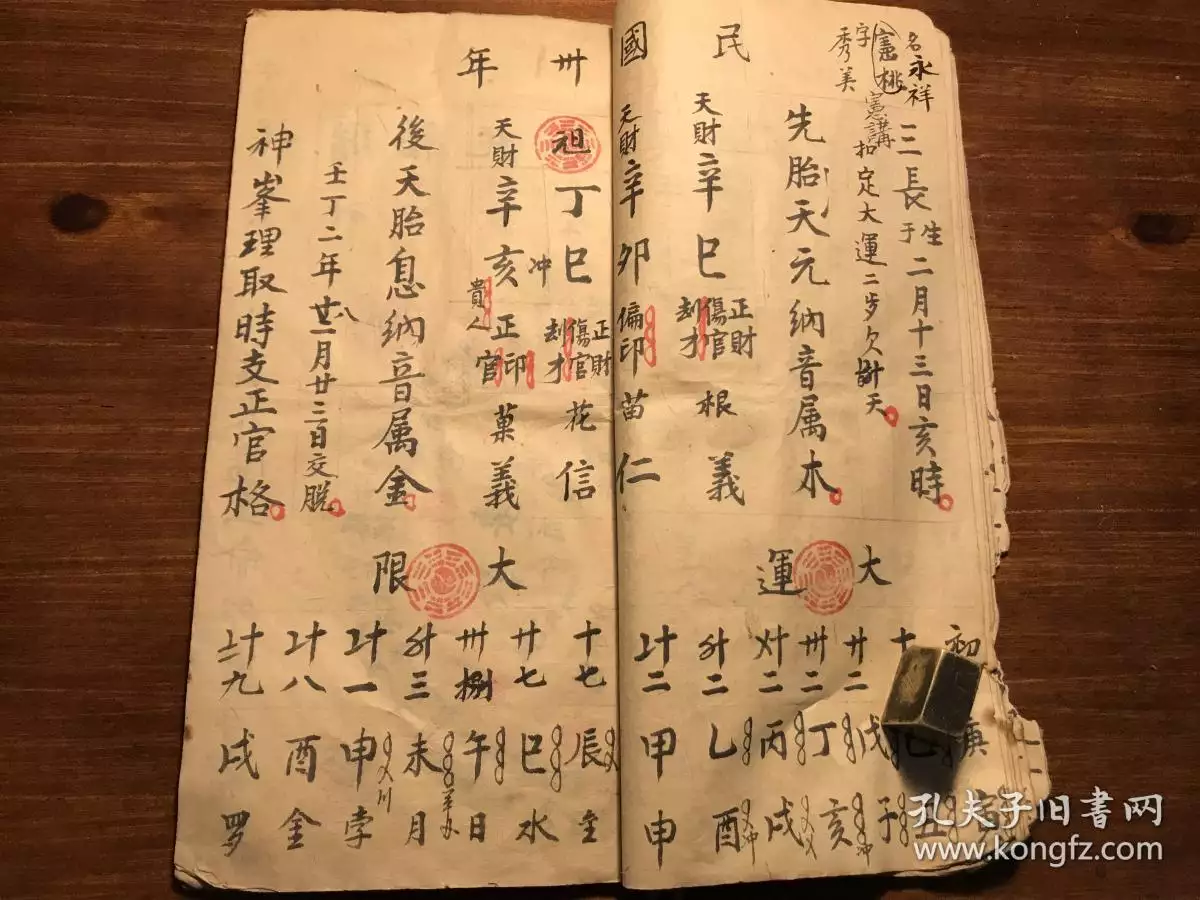 名永祥
憲桃
字秀美
憲講
三長生于二月十三日亥時
扣定大運二步欠
天
先胎天元納音属木
民國卅年
天財辛巳
正財
傷官
刦才
根義
天財辛卯
偏印
苗仁
祖丁巳
冲
正財
傷官
刦才
花信
天財辛亥
貴人
正印
正官
菓義
後天胎息納音属金
壬丁二年
月廿三日交脱
神峯理取時支正官格
大運
初
庚
廿二
戊子
卅二
丁亥
〤十二
丙戌
〥十二
乙酉
〦十二
甲申
大限
十七
辰
廿七
巳水
卅捌
午日
〥十三
未月
〦十一
申孛
〦十八
酉金
戌罗
孔夫子旧书网
www.kongfz.com